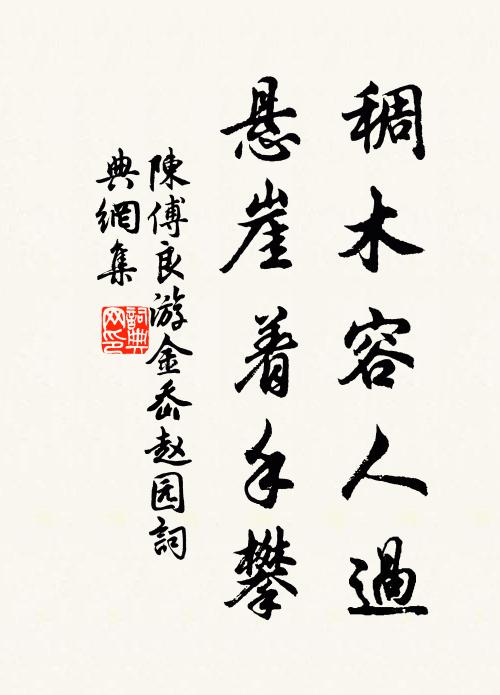 稠木容人過
悬崖着手攀
陳傅良游金岙赵园詞
典網集
詞典網印